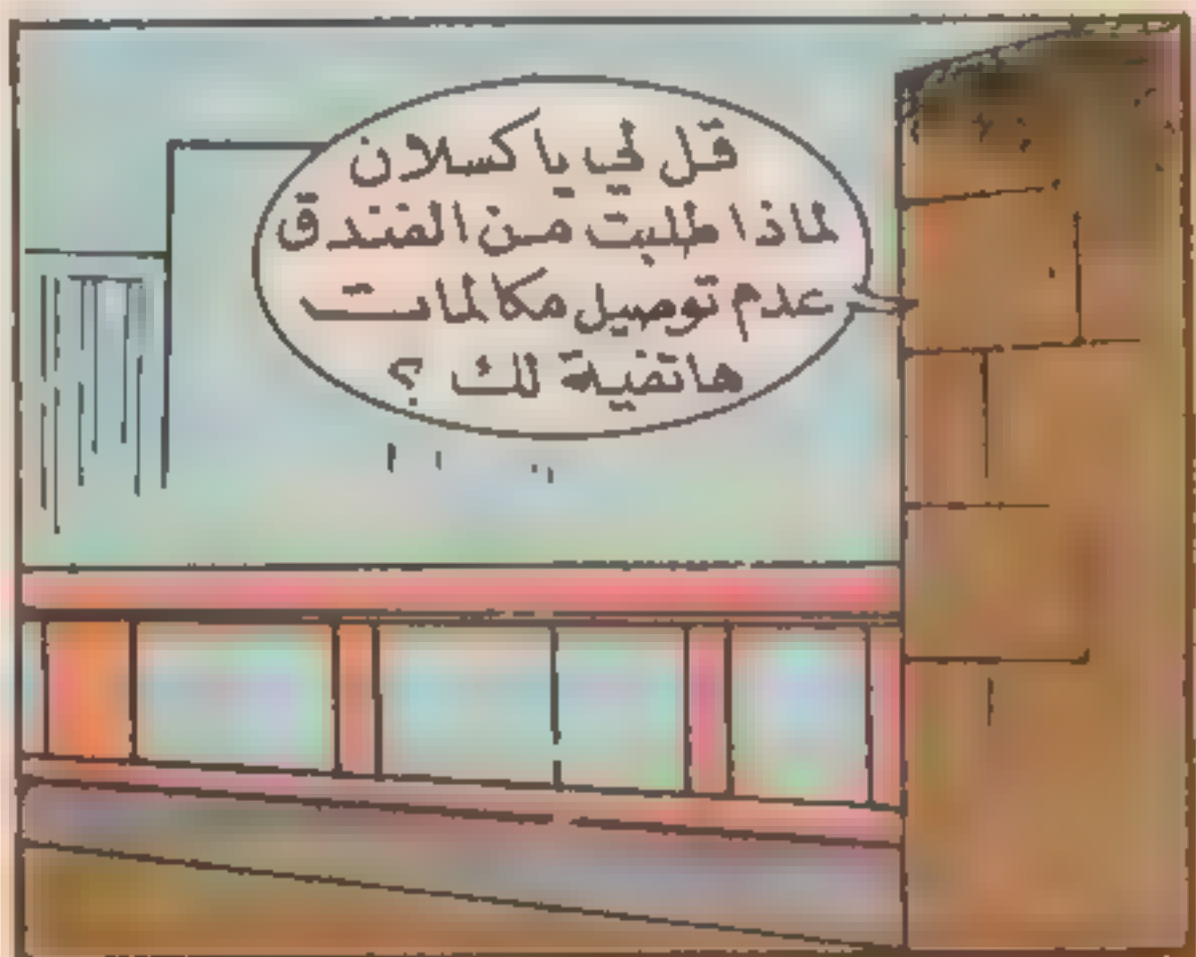 قل لي يا كسلان
لماذا طلبت من الفندق
عدم توصيل مكالمات
هاتفية لك ؟